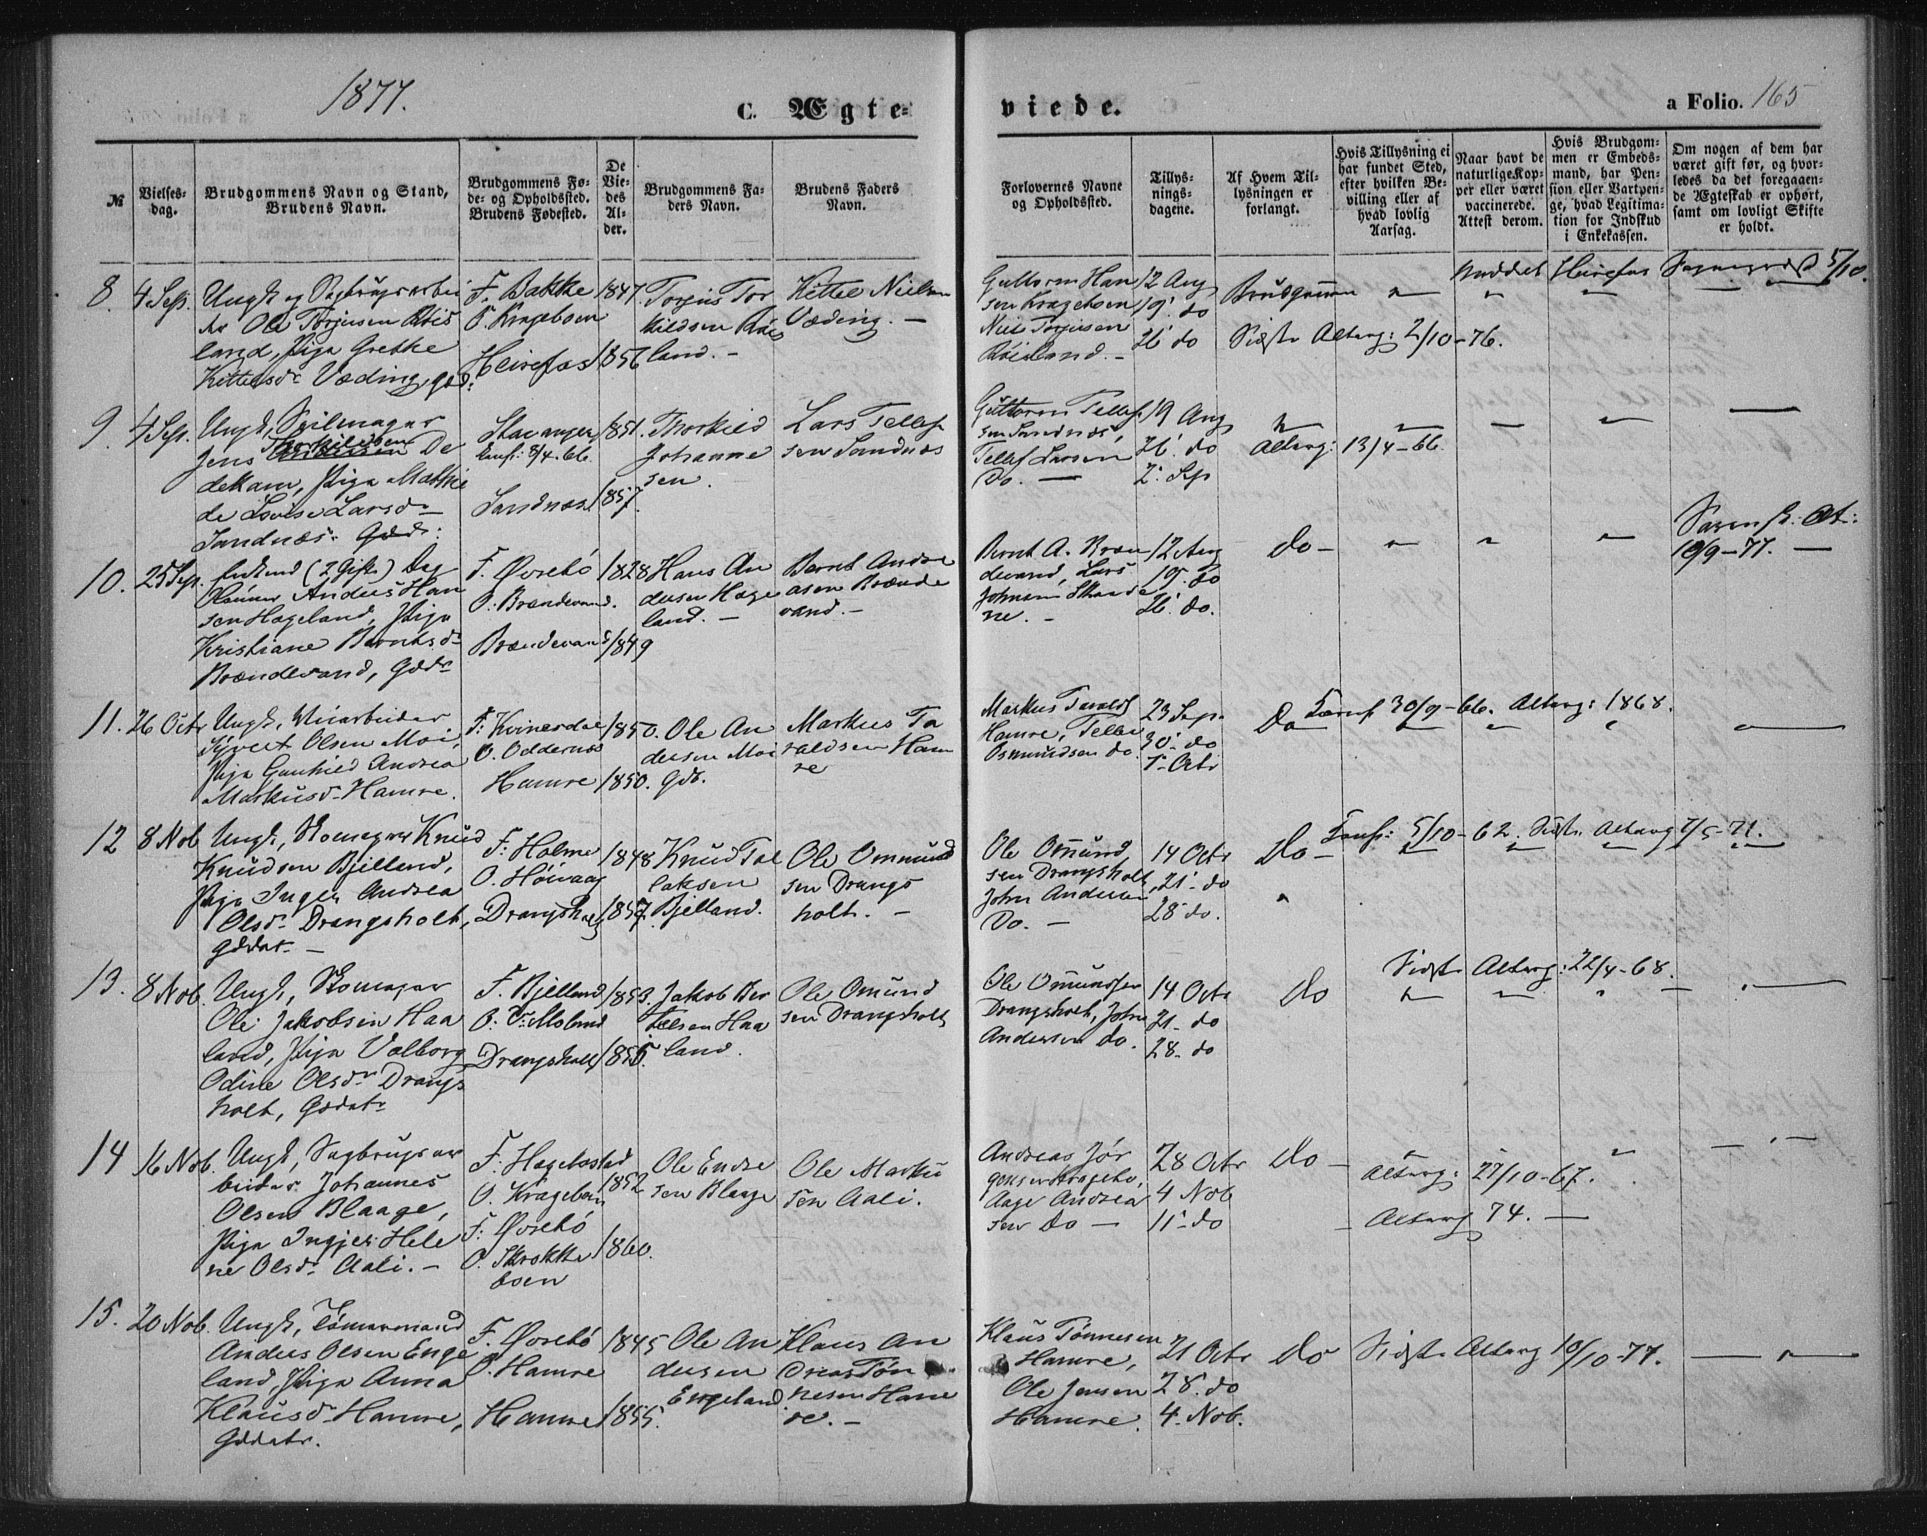 1877.
C. Ægte=
viede.
a Folio. 165
№
Vielses-
dag.
Brudgommens Navn og Stand,
Brudens Navn.
Brudgommens Fø-
de- og Opholdssted.
Brudens Fødested.
De
Vie-
des
Al-
der.
Brudgommens Fa-
ders Navn.
Brudens Faders
Navn.
Forlovernes Navne
og Opholdssted.
Tillys-
nings-
dagene.
Af Hvem Til-
lysningen er
forlangt.
Hvis Tillysning ei
har fundet Sted,
efter hvilken Be-
villing eller af
hvad lovlig
Aarsag.
Naar havt de
naturlige Kop-
per eller været
vaccinerede.
Attest derom.
Hvis Brudgom-
men er Embeds-
mand, har Pen-
sion eller Vartpen-
ge, hvad Legitima-
tion for Indskud
i Enkekassen.
Om nogen af dem har
været gift før, og hvor-
ledes da det foregaaen-
de Ægteskab er ophørt,
samt om lovligt Skifte
er holdt.
8. 4 Sep.
Ungk og Sagbrugsarbei
der Ole Torjusen Röis
land, Pige Grethe
Kittelsdr Væding, gdd:
F. Bakke
O. Krageboen
Heirefos
1847
1856
Torjus Tor
kildsen Röis
land. -
Kittel Nielsen
Væding. -
Guttorm Han
sen Krageboen
Niels Torjusen
Röisland. -
12 Aug
19. do
26 do
Brudgommen
Sidste Alterg: 2/10-76.
5/10.
9. 4 Sep.
Ungk, Seilmager
Jens Thorkildsen De
dekam, Pige Mathil
de Lovise Larsdr
Sandnæs. Gddr:
Stavanger
Conf: 8/4-66.
Sandnæs
1851.
1857.
Thorkild
Johanne
sen.
Lars Tellef
sen Sandnæs
Guttorm Tellef
sen Sandnæs,
Tellef Larsen
Do. -
19 Aug
26. do
2. Sep
Alterg: 13/4-66.
10. 25 Sep.
Enkemd (2 Gifte) Dag
lönner Anders Han
sen Hægeland, Pige
Kristiane Berntsdr
Brændevand, Gddr
F. Øvrebö
O. Brændevand.
Brændevand
1828
1849
Hans An
dersen Hæge
land. -
Bernt Andre
asen Brænde
vand. -
Bernt A. Bræn
devand, Lars
Johnsen Strande
ne. -
12 Aug
19. do
26. do.
do -
10/9-77. -
11. 26 Octr
Ungk, Veiarbeider
Sivert Olsen Moi,
Pige Gunhild Andrea
Markusdr Hamre.
F: Kvinesdal
O. Oddernæs
Hamre
1850.
1850.
Ole An
dersen Moi
Gdb.
Markus Ta
raldsen Ham
re
Markus Taralds
Hamre, Tellef
Osmundsen do.
23 Sep.
30. do
7. Octr
Do
Conf 30/9-66. Alterg: 1868.
12 8 Nob
Ungk, Skomager Knud
Knudsen Bjelland,
Pige Inger Andrea
Olsdr Drangsholt,
Gddatr -
F: Holme
O. Höivaag
Drangsholt
1848
1857.
Knud Tol
laksen
Bjelland.
Ole Ommund
sen Drangs
holt. -
Ole Omund
sen Drangsholt
John Andersen
Do. -
14 Octr
21. do
28 do.
Do -
Conf: 5/10-62. Sidste Alterg 7/5-71.
13. 8 Nob.
Ungk, Skomager
Ole Jakobsen Haa
land, Pige Valborg
Odine Olsdr Drangs
holt, Gddatr
F. Bjelland
O. V: Moland
Drangsholt
1853.
1855.
Jakob Ber
telsen Haa
land.
Ole Omund
sen Drangsholt
Ole Omundsen
Drangsholt, John
Andersen do.
14 Octr
21. do
28. do
Do
Sidste Alterg: 22/4-68.
14 16 Nob.
Ungk, Sagbrugsar
beider Johannes
Olsen Blaage,
Pige Ingjer Hele
ne Olsdr Aali. -
F. Hægebostad
O. Krageboen
F: Øvrebö
O. Skrokke
boen
1852
1860.
Ole Endre
sen Blaage
Ole Marku
sen Aali.
Andreas Jör
gensen Kragebo,
Aage Andrea
sen do -
28 Octr
4 Nob
11. do
Do -
Alterg: 27/10-67.
- Alterg 74. -
15. 20 Nob.
Ungk, Tömmermand
Anders Olsen Enge
land, Pige Anna
Klausdr Hamre,
Gddatr.
F. Øvrebö
O. Hamre
Hamre
1845
1855.
Ole An
dersen
Engeland
Klaus An
dreas Tön
nesen Ham
re. -
Klaus Tönnesen
Hamre,
Ole Jensen
Hamre.
21 Octr
28. do
4. Nob.
do
Sidste Alterg 10/10-77.